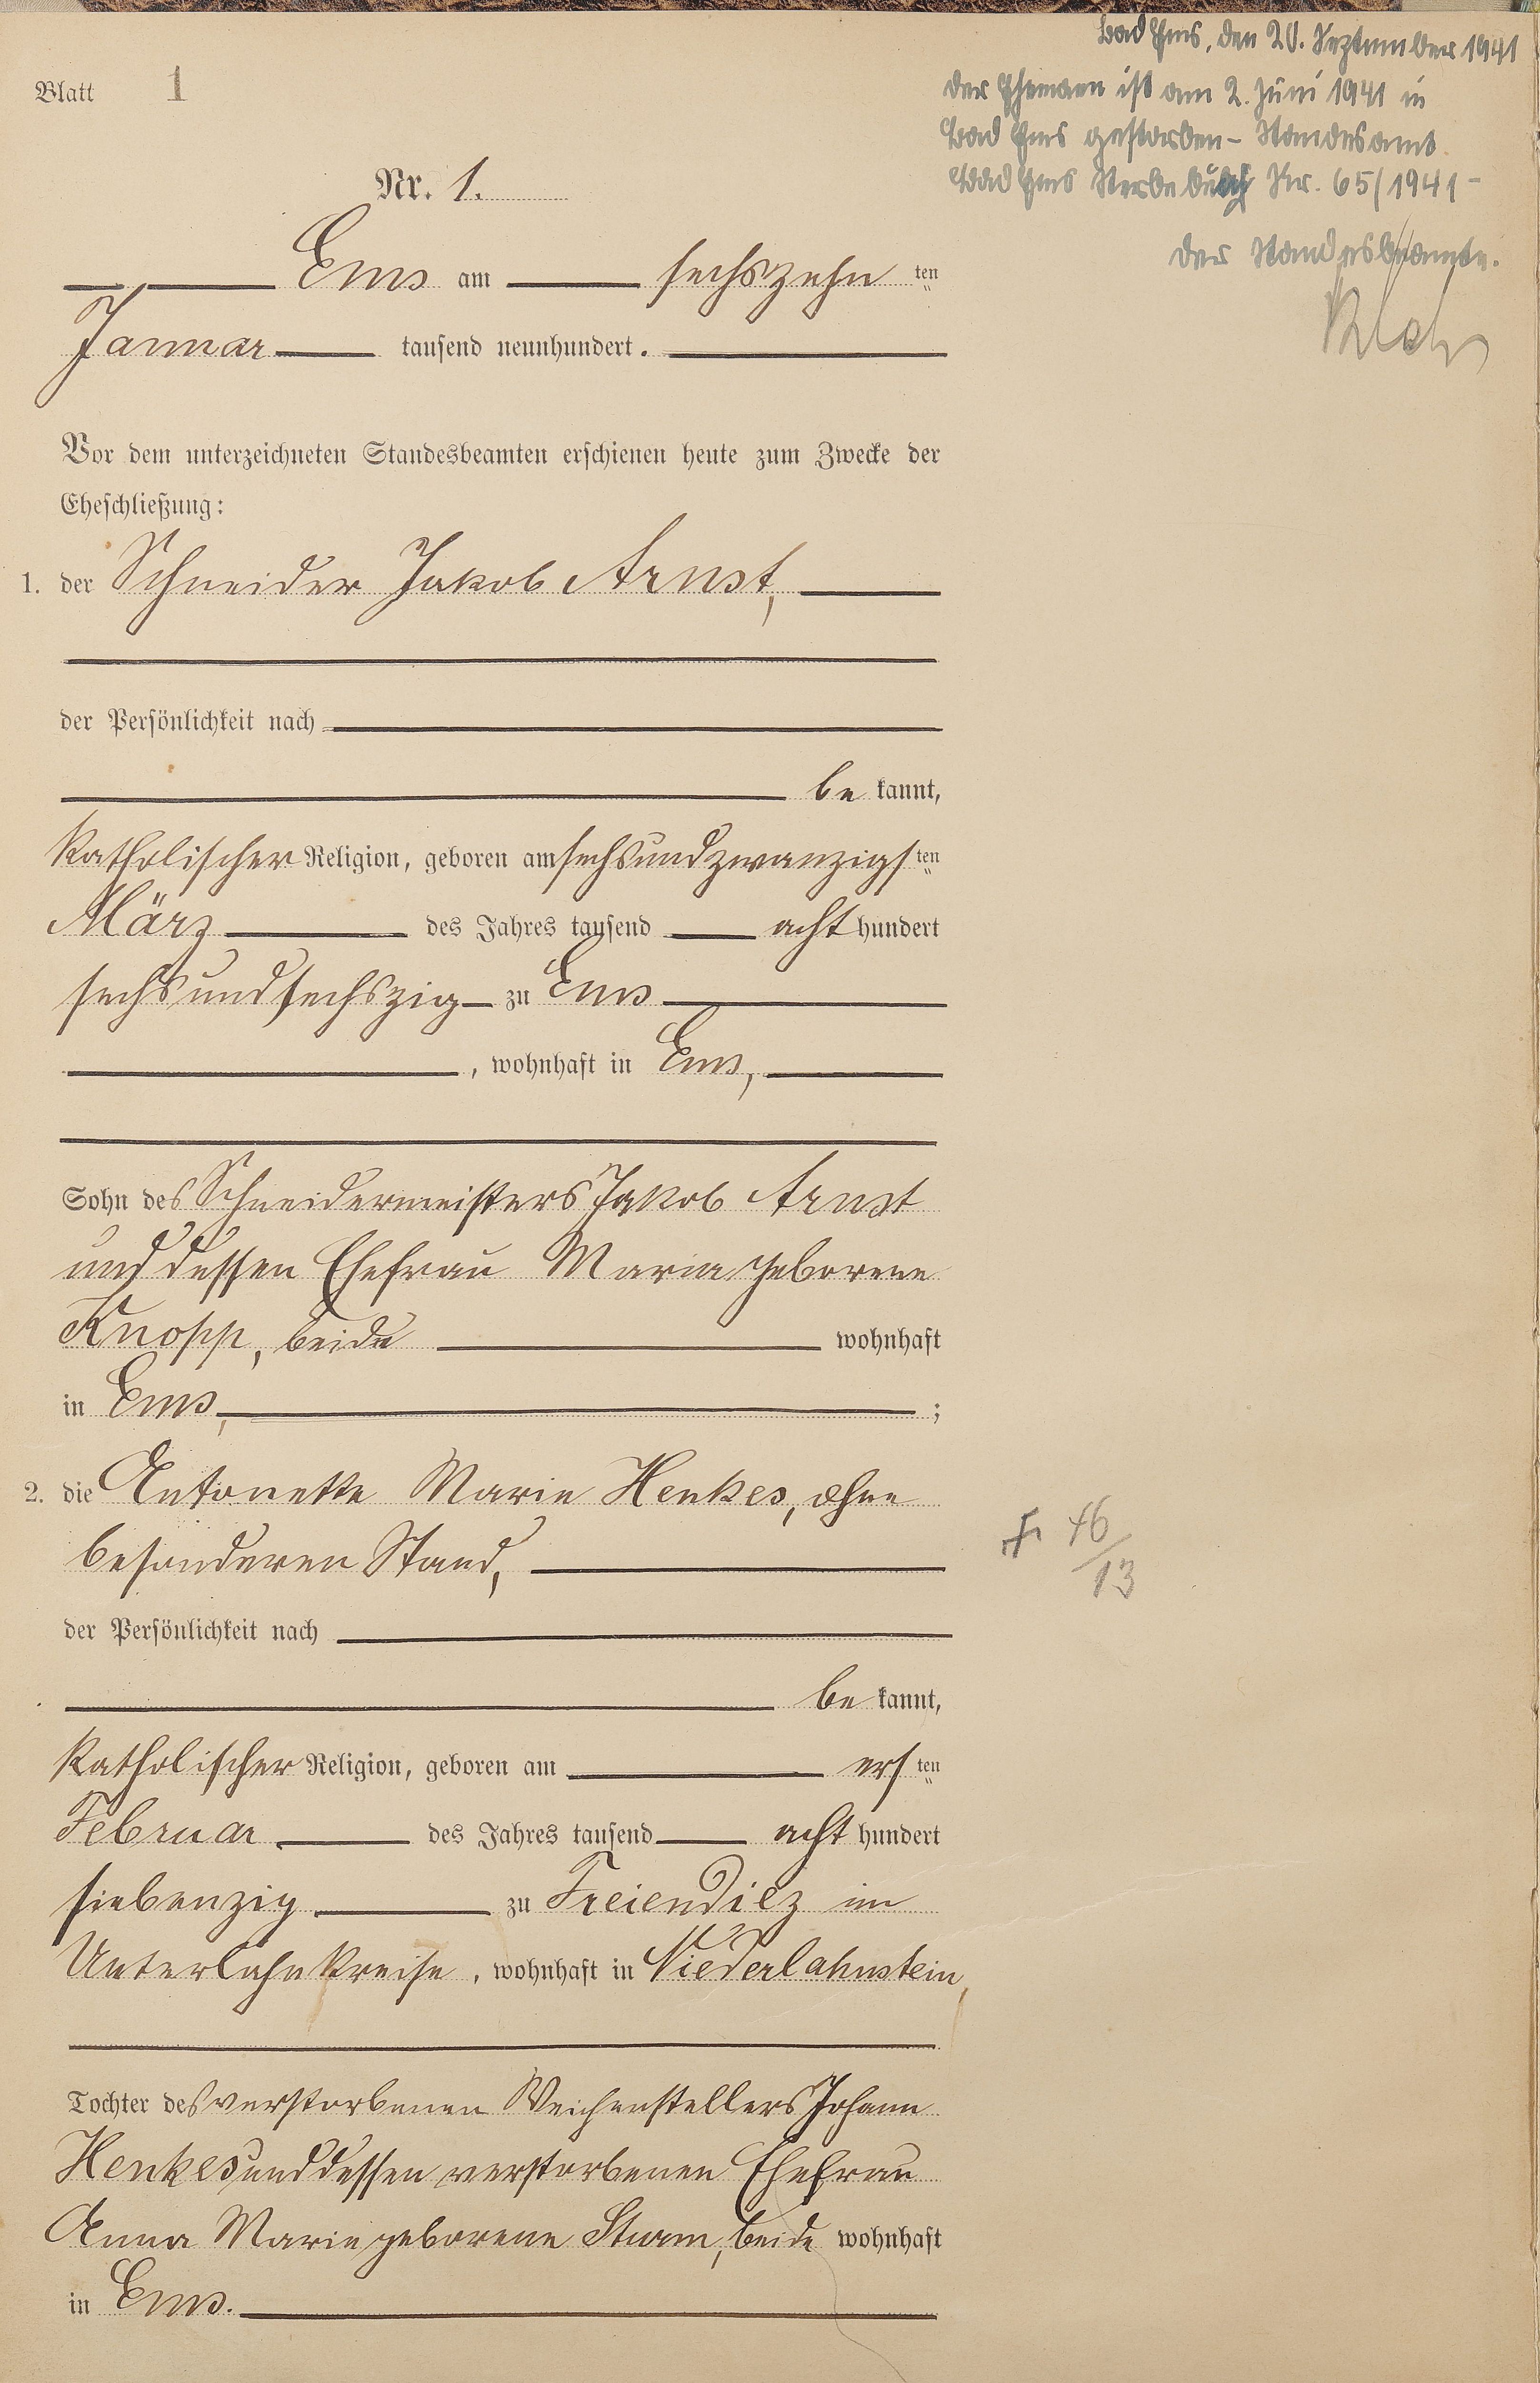 Blatt 1
Bad Ems, den 20. September 1941
Der Ehemann ist am 2. Juni 1941 in
Bad Ems gestorben - Standesamt
Bad Ems Sterbebuch Nr. 65/1941 -
Der Standesbeamte.
Nr. 1.
Ems am sechszehn ten
Januar tausend neunhundert.
Vor dem unterzeichneten Standesbeamten erschienen heute zum Zwecke der
Eheschließung:
1. der Schneider Jakob Arnst,
der Persönlichkeit nach
be kannt,
katholischer Religion, geboren am sechsundzwanzigs ten
März des Jahres tausend acht hundert
sechsundsechszig zu Ems
, wohnhaft in Ems,
Sohn des Schneidermeisters Jakob Arnst
und dessen Ehefrau Maria geborene
Knopp, beide wohnhaft
in Ems, ;
2. die Antonette Marie Henkes, ohne
besonderen Stand,
46/13
der Persönlichkeit nach
be kannt,
katholischer Religion, geboren am ers ten
Februar des Jahres tausend acht hundert
siebenzig zu Freiendiez im
Unterlahnkreise, wohnhaft in Niederlahnstein,
Tochter des verstorbenen Weichenstellers Johann
Henkes und dessen verstorbenen Ehefrau
Anna Marie geborene Sturm, beide wohnhaft
in Ems.